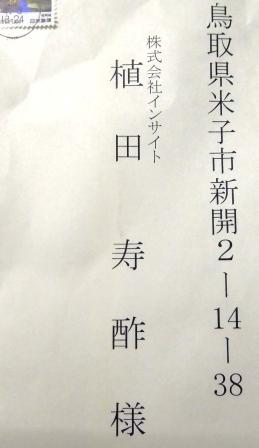 鳥取県米子市新開2ー14ー38
株式会社インサイト
植田 寿酢 様